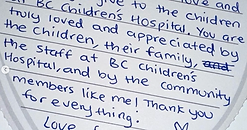 give to the children
at BC Children's Hospital. You are
truly loved and appreciated by
the children, their family,
the staff at BC children's
Hospital, and by the community
members like me! Thank you
for everything.
Love